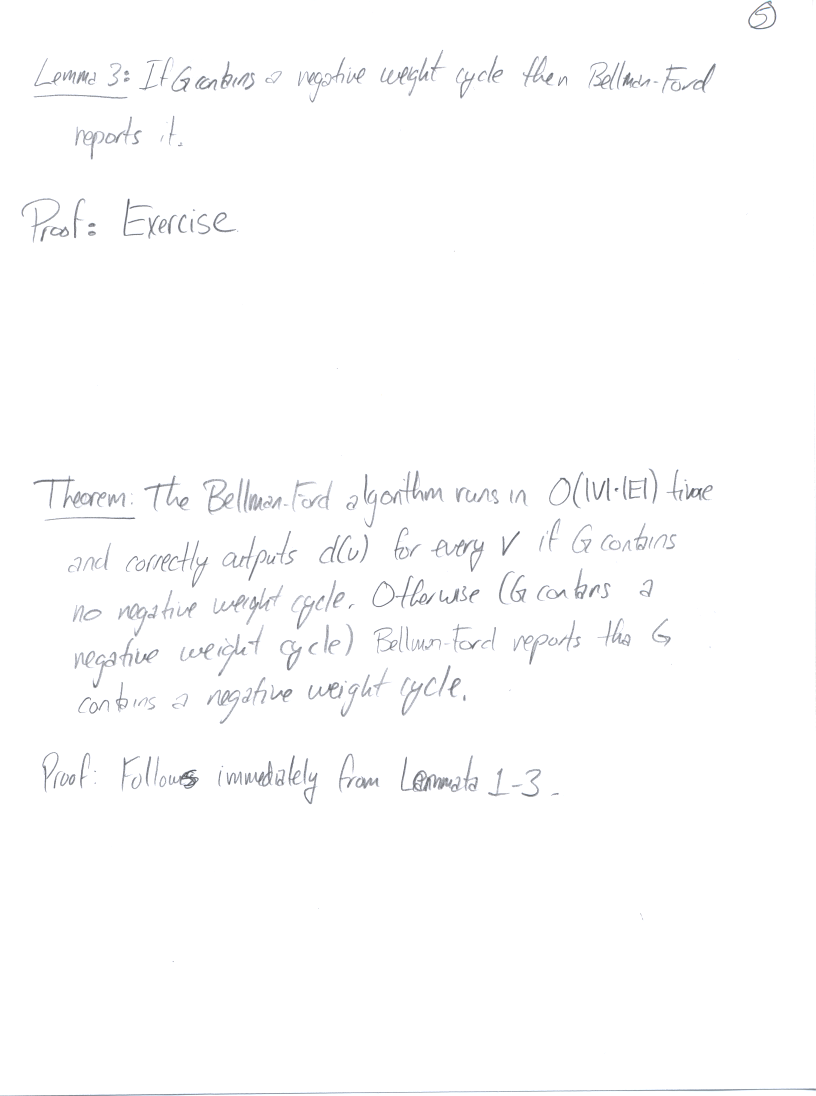 5
Lemma 3: If G contains a negative weight cycle then Bellman-Ford
reports it.
Proof: Exercise
Theorem: The Bellman-Ford algorithm runs in O(|V|·|E|) time
and correctly outputs d(v) for every V if G contains
no negative weight cycle. Otherwise (G contains a
negative weight cycle) Bellman-Ford reports tha G
contains a negative weight cycle.
Proof: Follows immediately from Lemmata 1-3.